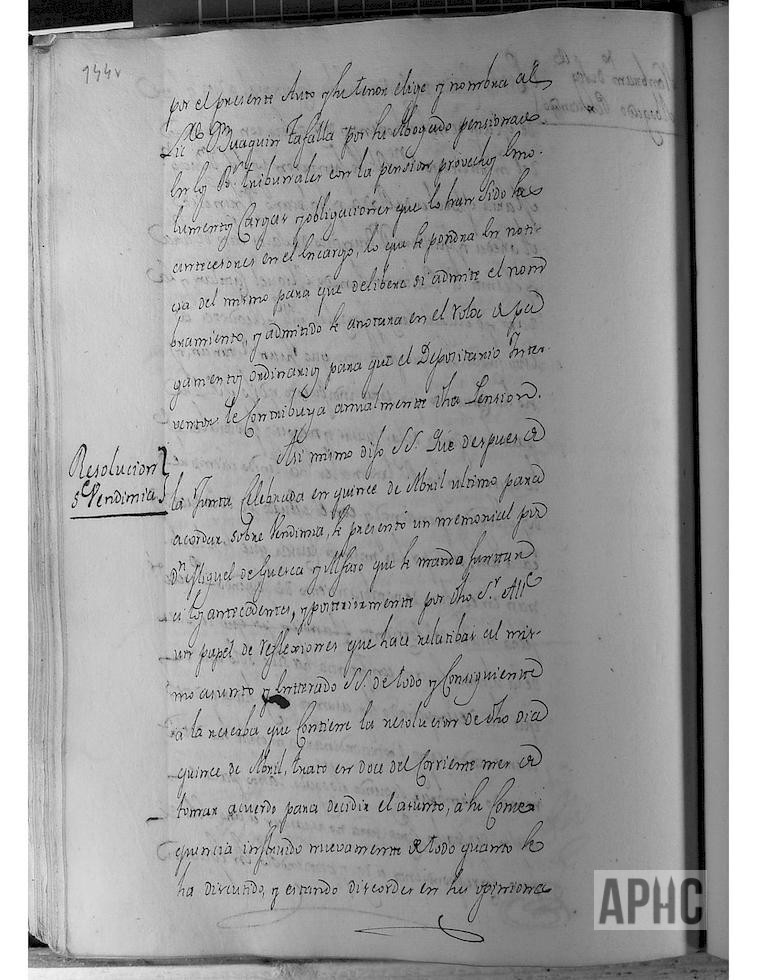 144v
por el presente Auto y su tenor elige y nombra al
Licdo Dn Juaquin Tafalla por su Abogado pensionado
en los Rs tribunales con la pension provechos emo-
lumentos Cargas y obligaciones que lo han sido sus
antecesores en el encargo, lo que se pondra en noti-
cia del mismo para que delibere si admite el nom
bramiento, y admitido se anotara en el rolde de pa
gamentos ordinarios para que el Depositario Inter
ventor le Contribuya annualmente dha Pension.
Resolucion
se Vendimia
Asi mismo dijo S.S. Que despues de
la Junta Celebrada en quince de Abril ultimo para
acordar sobre Vendimia, se presentó un memorial por
Dn Miguel de Guesca y Alfaro que se manda juntar
a los antecedentes, y posteriormente por dho Sr Alle
un papel de reflexiones que hace relatibas al mis-
mo asunto y enterado S.S. de todo y Consiguiente
a la reserba que Contiene la resolucion de dho dia
quince de Abril, trato en doce del Corriente mes de
tomar acuerdo para decidir el asunto, a su Conse
quencia instruido nuevamente de todo quanto se
ha discutido, y estando discordes en sus opiniones
APHC